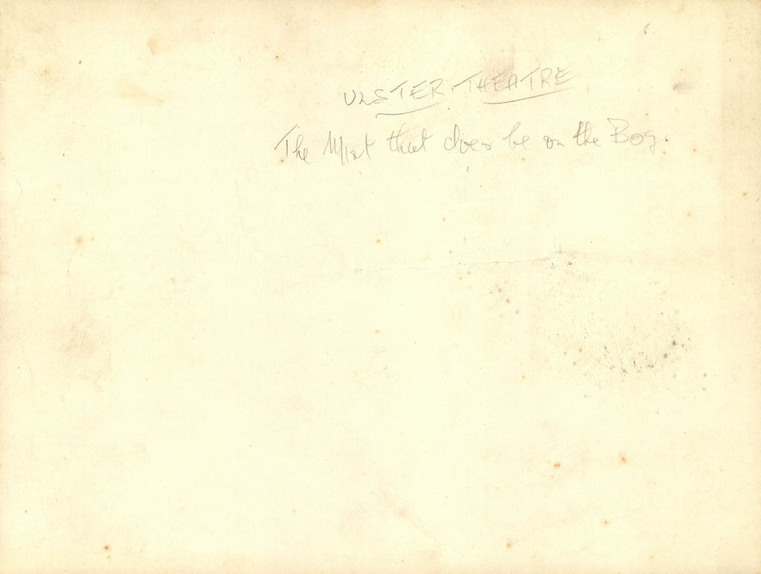 ULSTER THEATRE
The Mist that does be on the Bog.